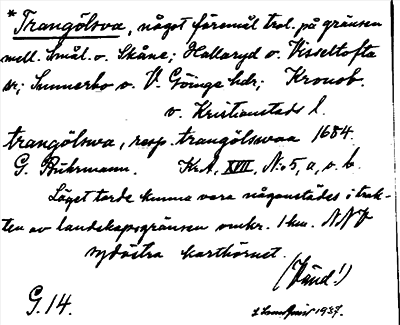 * Trangölsva, något föremål trol. på gränsen
mell. Smål. o. Skåne; Hallaryd o. Visseltofta
sr; Sunnerbo o. V. Göinge hdr; Kronob.
o. Kristianstads l.
trangölswa, resp. trangölswaa 1684.
G. Buhrmann. KrA, XVII, No 5, a, o. b.
Läget torde kunna vara någonstädes i trak-
ten av landskapsgränsen omkr. 1 km. NNV
sydöstra karthörnet.
(Vänd!)
G. 14. 1937.